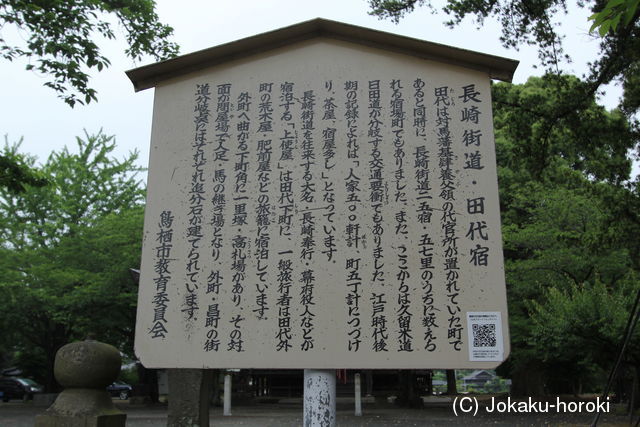 長崎街道・田代宿
田代は対馬藩基肄養父領の代官所が置かれていた町で
あると同時に、長崎街道二五宿・五七里のうちに数える
れる宿場町でもありました。また、ここからは久留米道
日田道が分岐する交通要衝でもありました。江戸時代後
期の記録によれば、「人家五〇〇軒計、町五丁計につづけ
り、茶屋、宿屋多し」となっています。
長崎街道を往来する大名、長崎奉行、幕府役人などが
宿泊する「上使屋」は田代上町に、一般旅行者は田代外
町の荒木屋、肥前屋などの旅籠に宿泊しています。
外町へ曲がる下町角に一里塚・高札場があり、その対
面が問屋場で人足、馬の継立場となり、外町・昌町の街
道分岐点にはそれぞれ追分石が建てられています。
鳥栖市教育委員会
(C) Jokaku-horoki